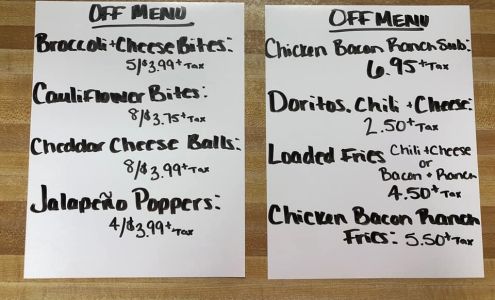 OFF MENU
Broccoli+Cheese Bites:
5/$3.99+Tax
Cauliflower Bites:
8/$3.75+Tax
Cheddar Cheese Balls:
8/$3.99+Tax
Jalapeño Poppers:
4/$3.99+Tax
OFF MENU
Chicken Bacon Ranch Sub:
6.95+Tax
Doritos, Chili + Cheese:
2.50+Tax
Loaded Fries Chili+Cheese
or
Bacon + Ranch
4.50+Tax
Chicken Bacon Ranch
Fries: 5.50+Tax